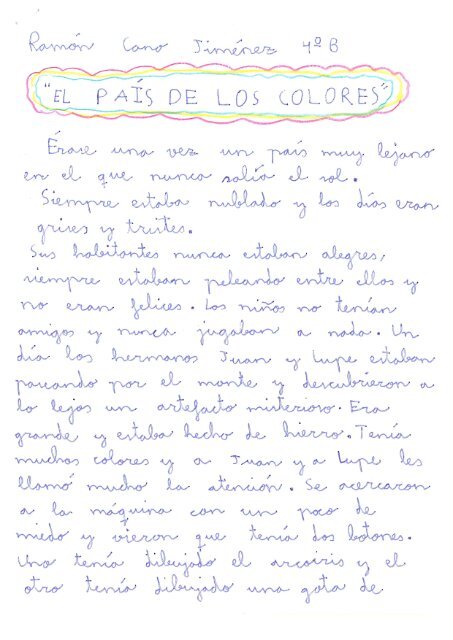 Ramón Cano Jiménez 4º B
"EL PAÍS DE LOS COLORES"
Érase una vez un país muy lejano
en el que nunca salía el sol.
Siempre estaba nublado y los días eran
grises y tristes.
Sus habitantes nunca estaban alegres,
siempre estaban peleando entre ellos y
no eran felices. Los niños no tenían
amigos y nunca jugaban a nada. Un
día los hermanos Juan y Lupe estaban
paseando por el monte y descubrieron a
lo lejos un artefacto misterioso. Era
grande y estaba hecho de hierro. Tenía
muchos colores y a Juan y a Lupe les
llamó mucho la atención. Se acercaron
a la máquina con un poco de
miedo y vieron que tenía dos botones.
Uno tenía dibujado el arcoiris y el
otro tenía dibujado una gota de